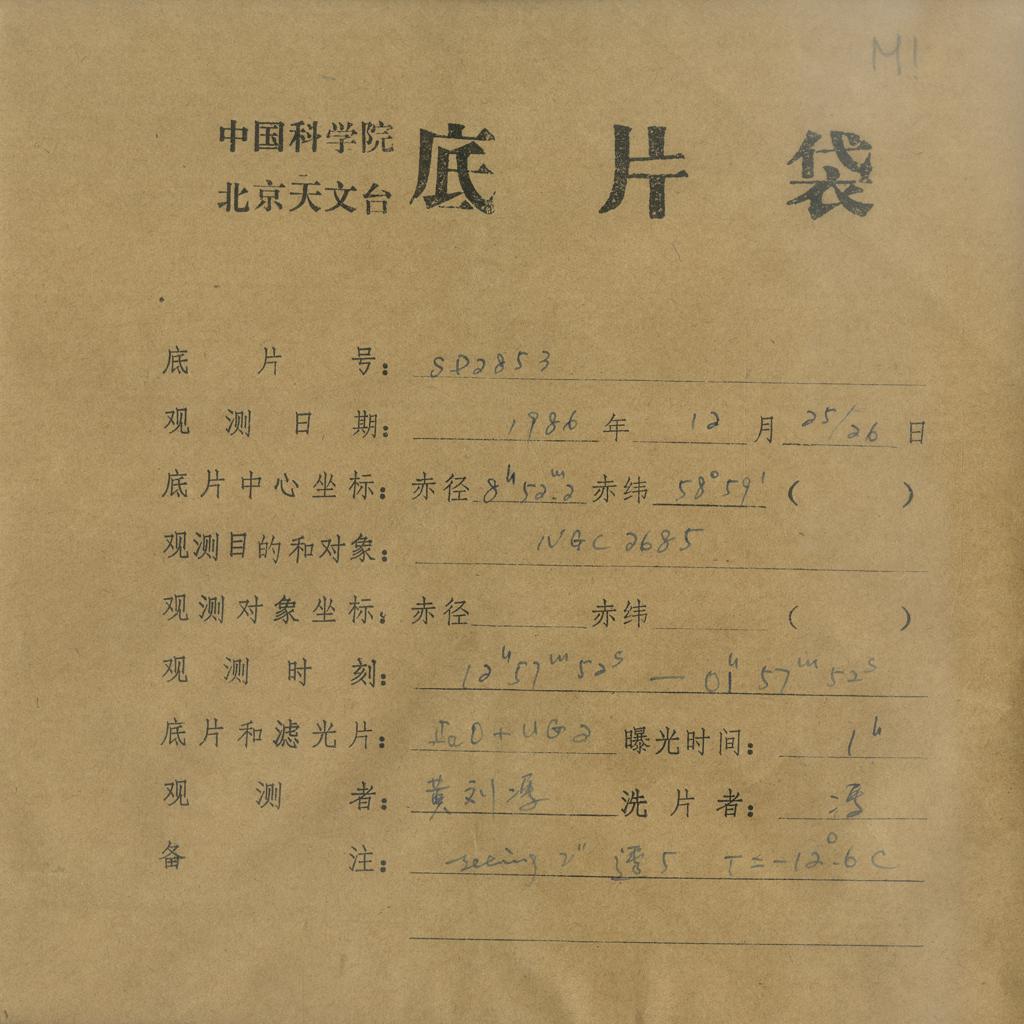 M!
中国科学院
北京天文台 底片袋
底片号: SP2853
观测日期: 1986年12月25/26日
底片中心坐标: 赤径 8h52m.2 赤纬 58°59′ ( )
观测目的和对象: NGC 2685
观测对象坐标: 赤径 赤纬 ( )
观测时刻: 12h57m52s — 01h57m52s
底片和滤光片: IIaO+UG2 曝光时间: 1h
观测者: 黄刘冯 洗片者: 冯
备注: seeing 2″ 透5 T=-12°.6C